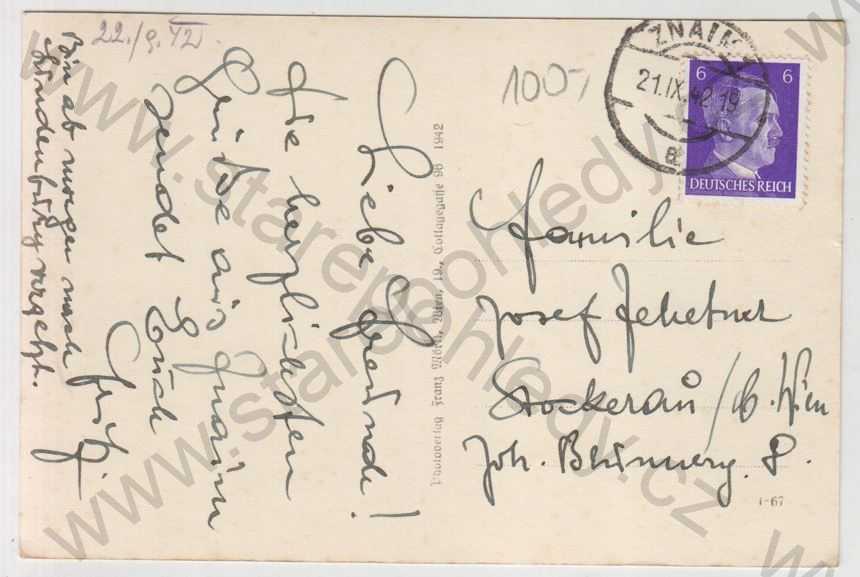 22./9. 42
Liebe Freunde!
die herzlichsten
Grüße aus Znaim
sendet Euch
Fritz.
Bin ab morgen nach
Lundenburg versetzt.
1007
ZNAIM
21.IX.42.19
a
6 6
DEUTSCHES REICH
Familie
Josef Zehetner
Stockerau / b. Wien
Joh. P.
Franz Mörtl, Wien, 19, 96 1942
1-67
www.starepohledy.cz